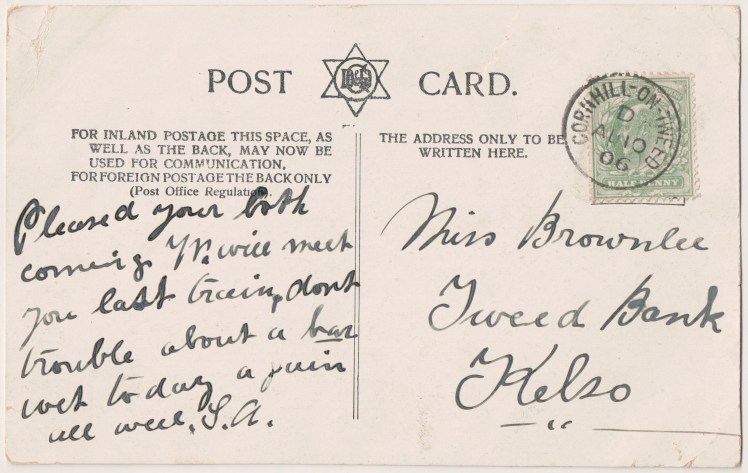 POST CARD.
FOR INLAND POSTAGE THIS SPACE, AS
WELL AS THE BACK, MAY NOW BE
USED FOR COMMUNICATION.
FOR FOREIGN POSTAGE THE BACK ONLY
(Post Office Regulation).
THE ADDRESS ONLY TO BE
WRITTEN HERE.
CORNHILL-ON-TWEED
D
AU 10
06
HALFPENNY
Pleased your both
coming. will meet
you last train, dont
trouble about a
wet to day again
all well. S.A.
Miss Brownlee
Tweed Bank
Kelso